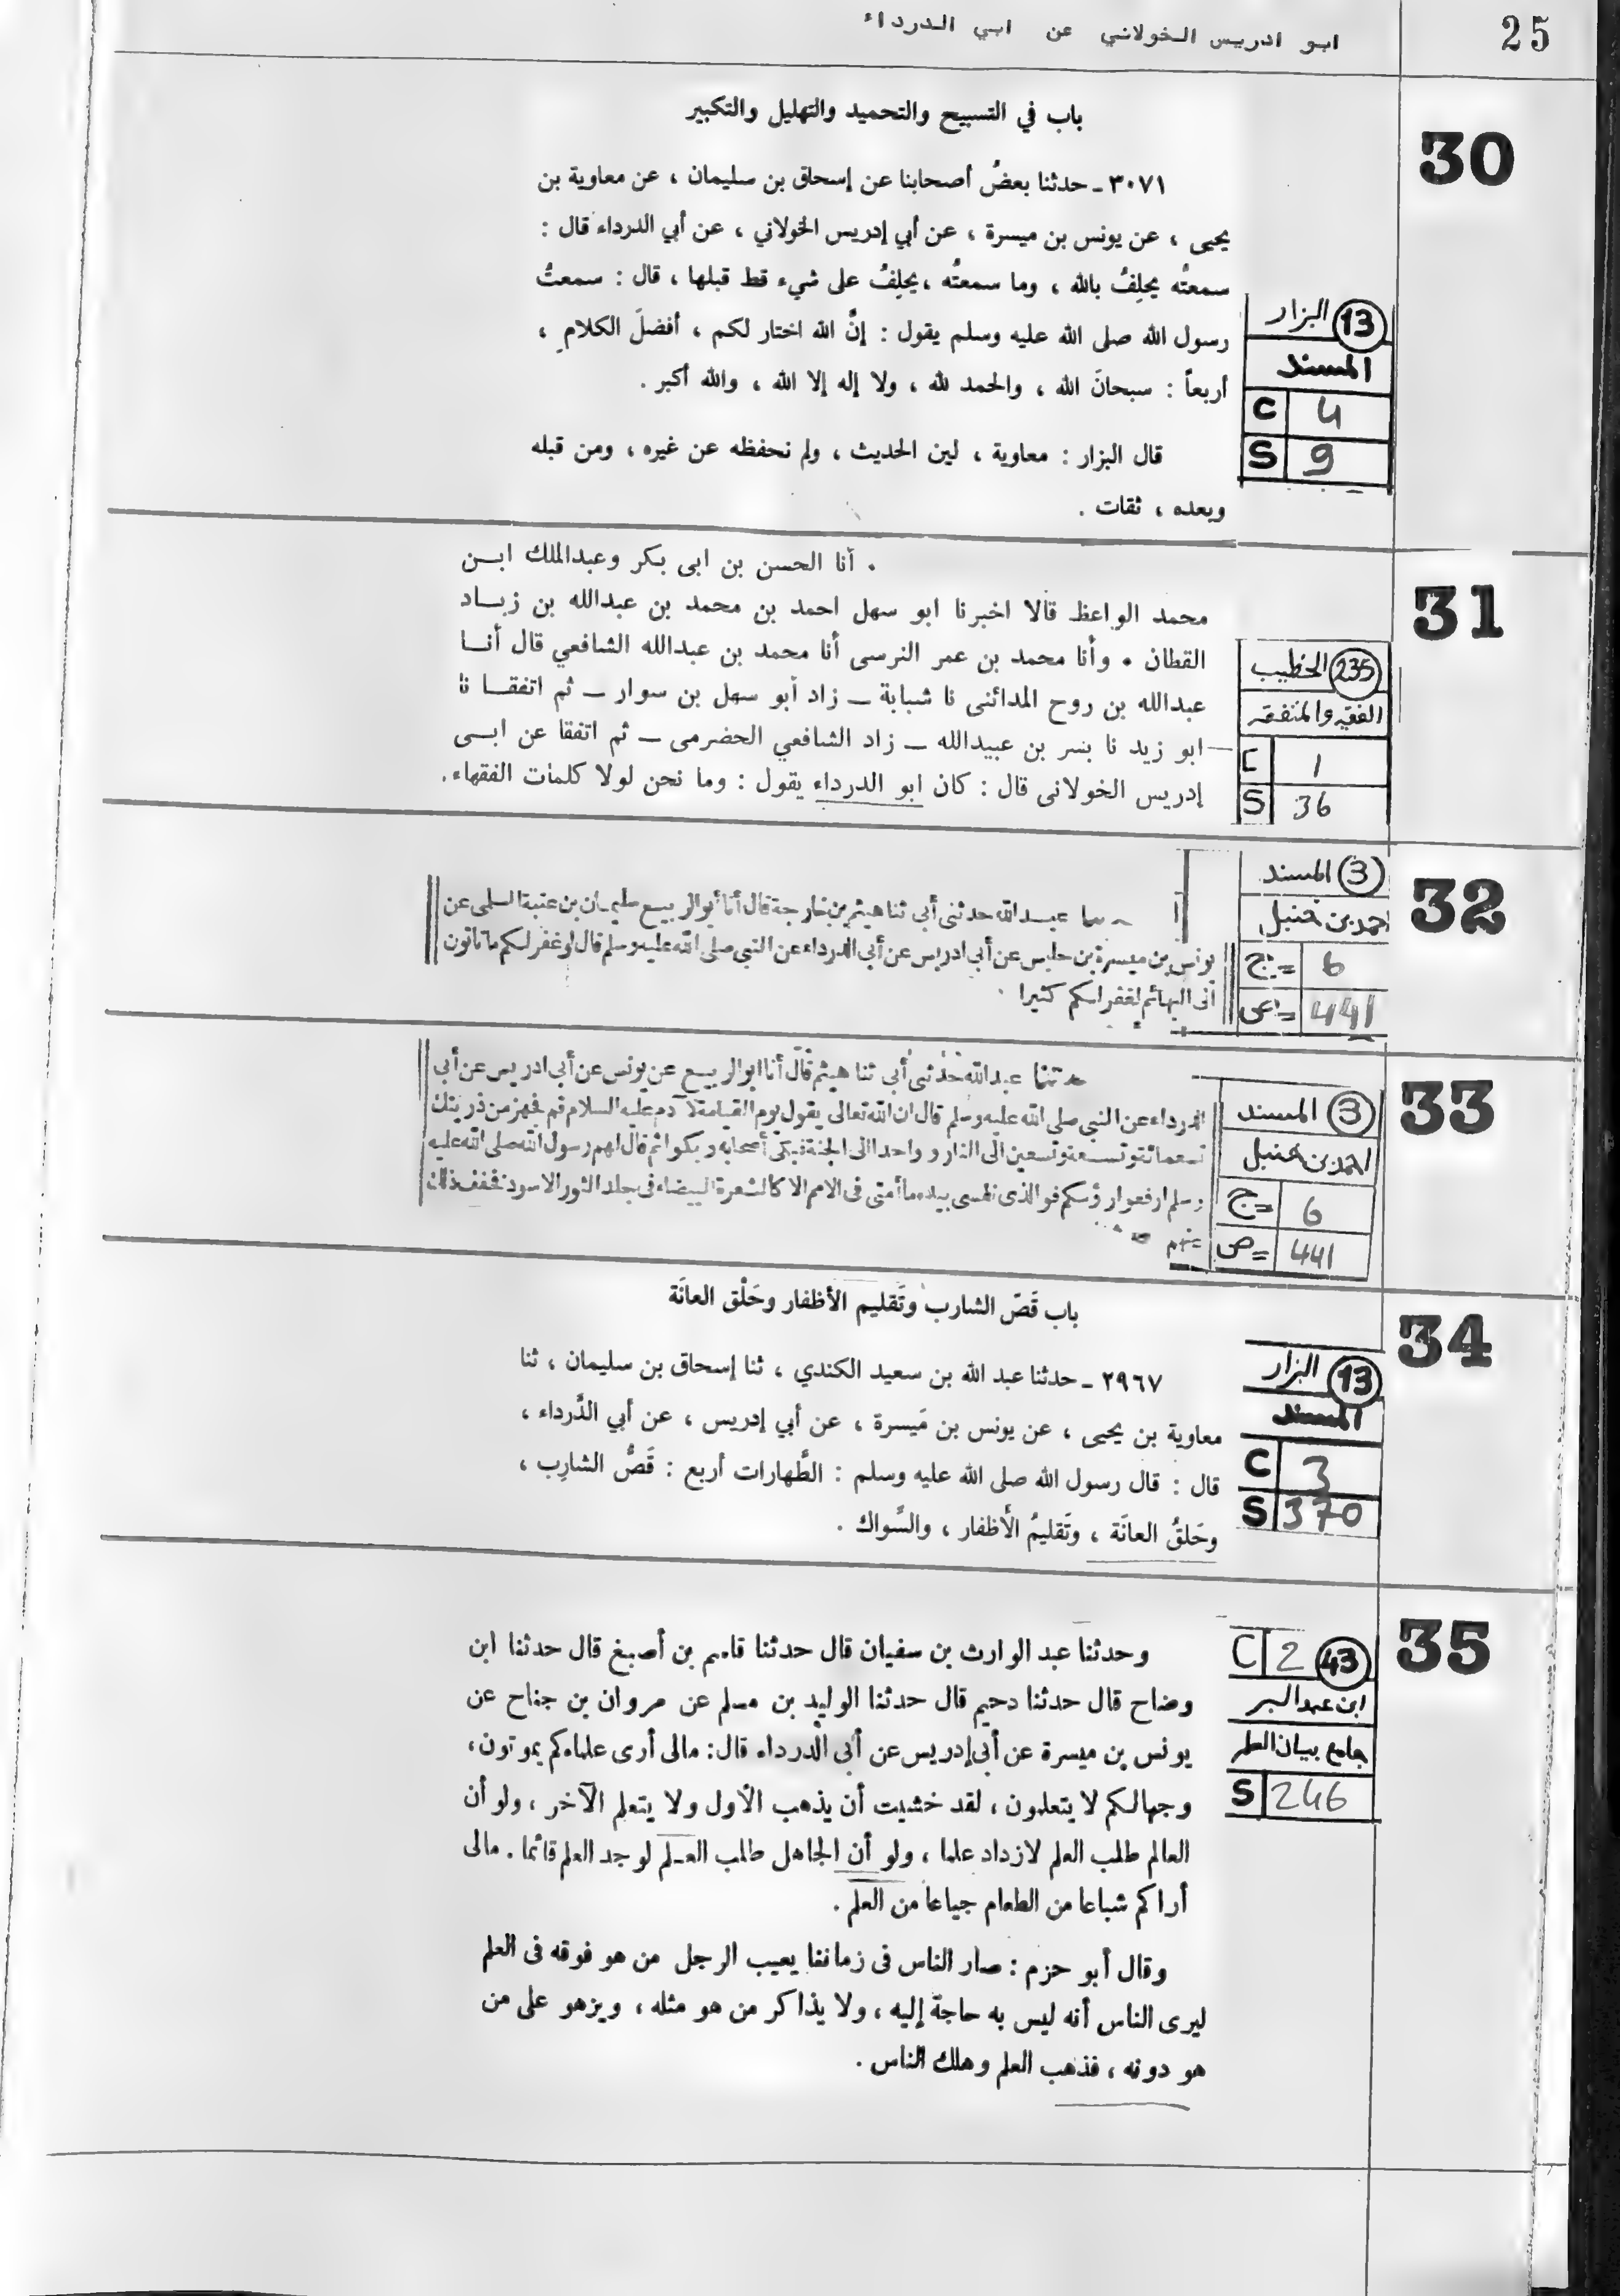 25
ابو ادريس الخولاني عن ابي الدرداء
30
باب في التسبيح والتحميد والتهليل والتكبير
٣٠٧١ ـ حدثنا بعضُ أصحابنا عن إسحاق بن سليمان ، عن معاوية بن
يحيى ، عن يونس بن ميسرة ، عن أبي إدريس الخولاني ، عن أبي الدرداء قال :
سمعتُه يحلِفُ بالله ، وما سمعتُه ، يحلِفُ على شيء قط قبلها ، قال : سمعتُ
رسول الله صلى الله عليه وسلم يقول : إنَّ الله اختار لكم ، أفضلَ الكلام ،
أربعاً : سبحانَ الله ، والحمد لله ، ولا إله إلا الله ، والله أكبر .
قال البزار : معاوية ، لين الحديث ، ولم نحفظه عن غيره ، ومن قبله
وبعده ، ثقات .
13 البزار
المسند
C 4
S 9
31
• أنا الحسن بن ابى بكر وعبدالملك ابـن
محمد الواعظ قالا اخبرنا ابو سهل احمد بن محمد بن عبدالله بن زيـاد
القطان • وأنا محمد بن عمر النرسى أنا محمد بن عبدالله الشافعي قال أنـا
عبدالله بن روح المدائنى نا شبابة ـ زاد أبو سهل بن سوار ـ ثم اتفقـا نا
ابو زيد نا بسر بن عبيدالله ـ زاد الشافعي الحضرمى ـ ثم اتفقا عن ابـى
إدريس الخولانى قال : كان ابو الدرداء يقول : وما نحن لولا كلمات الفقهاء.
235 الخطيب
الفقيه والمتفقه
C 1
S 36
32
عبد الله حدثنى أبى ثنا هيثم بن خارجة قال أنا أبو الربيع سليمان بن عتبة السلمى عن
يونس بن ميسرة بن حلبس عن أبى ادريس عن أبى الدرداء عن النبى صلى الله عليه وسلم قال لو غفر لكم ما تاتون
الى البهائم لغفر لكم كثيرا .
3 المسند
احمد بن حنبل
ج= 6
ص= 441
33
حدثنا عبد الله حدثنى أبى ثنا هيثم قال أنا ابو الربيع عن يونس عن أبى ادريس عن أبى
الدرداء عن النبى صلى الله عليه وسلم قال ان الله تعالى يقول يوم القيامة لآدم عليه السلام قم فجهز من ذريتك
تسعمائة وتسعة وتسعين الى النار وواحدا الى الجنة فبكى أصحابه وبكوا ثم قال لهم رسول الله صلى الله عليه
وسلم ارفعوا رؤسكم فوالذى نفسى بيده ما أمتى فى الامم الا كالشعرة البيضاء فى جلد الثور الاسود فخفف ذلك
عنهم
3 المسند
احمد بن حنبل
ج= 6
ص= 441
34
باب قَصّ الشارب وتَقليم الأظفار وحَلْق العانَة
٢٩٦٧ ـ حدثنا عبد الله بن سعيد الكندي ، ثنا إسحاق بن سليمان ، ثنا
معاوية بن يحيى ، عن يونس بن مَيسرة ، عن أبي إدريس ، عن أبي الدَّرداء ،
قال : قال رسول الله صلى الله عليه وسلم : الطَّهارات أربع : قَصُّ الشارِب ،
وحَلقُ العانَة ، وتَقليمُ الأظفار ، والسَّواك .
13 البزار
المسند
C 3
S 370
35
وحدثنا عبد الوارث بن سفيان قال حدثنا قاسم بن أصبغ قال حدثنا ابن
وضاح قال حدثنا دحيم قال حدثنا الوليد بن مسلم عن مروان بن جناح عن
يونس بن ميسرة عن أبى إدريس عن أبى الدرداء قال: مالى أرى علماءكم يموتون،
وجهالكم لا يتعلمون ، لقد خشيت أن يذهب الأول ولا يتعلم الآخر ، ولو أن
العالم طلب العلم لازداد علما ، ولو أن الجاهل طلب العلم لوجد العلم قائما . مالى
أراكم شباعا من الطعام جياعا من العلم .
وقال أبو حزم : صار الناس فى زماننا يعيب الرجل من هو فوقه فى العلم
ليرى الناس أنه ليس به حاجة إليه ، ولا يذاكر من هو مثله ، ويزهو على من
هو دونه ، فذهب العلم وهلك الناس .
C 2 43
ابن عبد البر
جامع بيان العلم
S 246